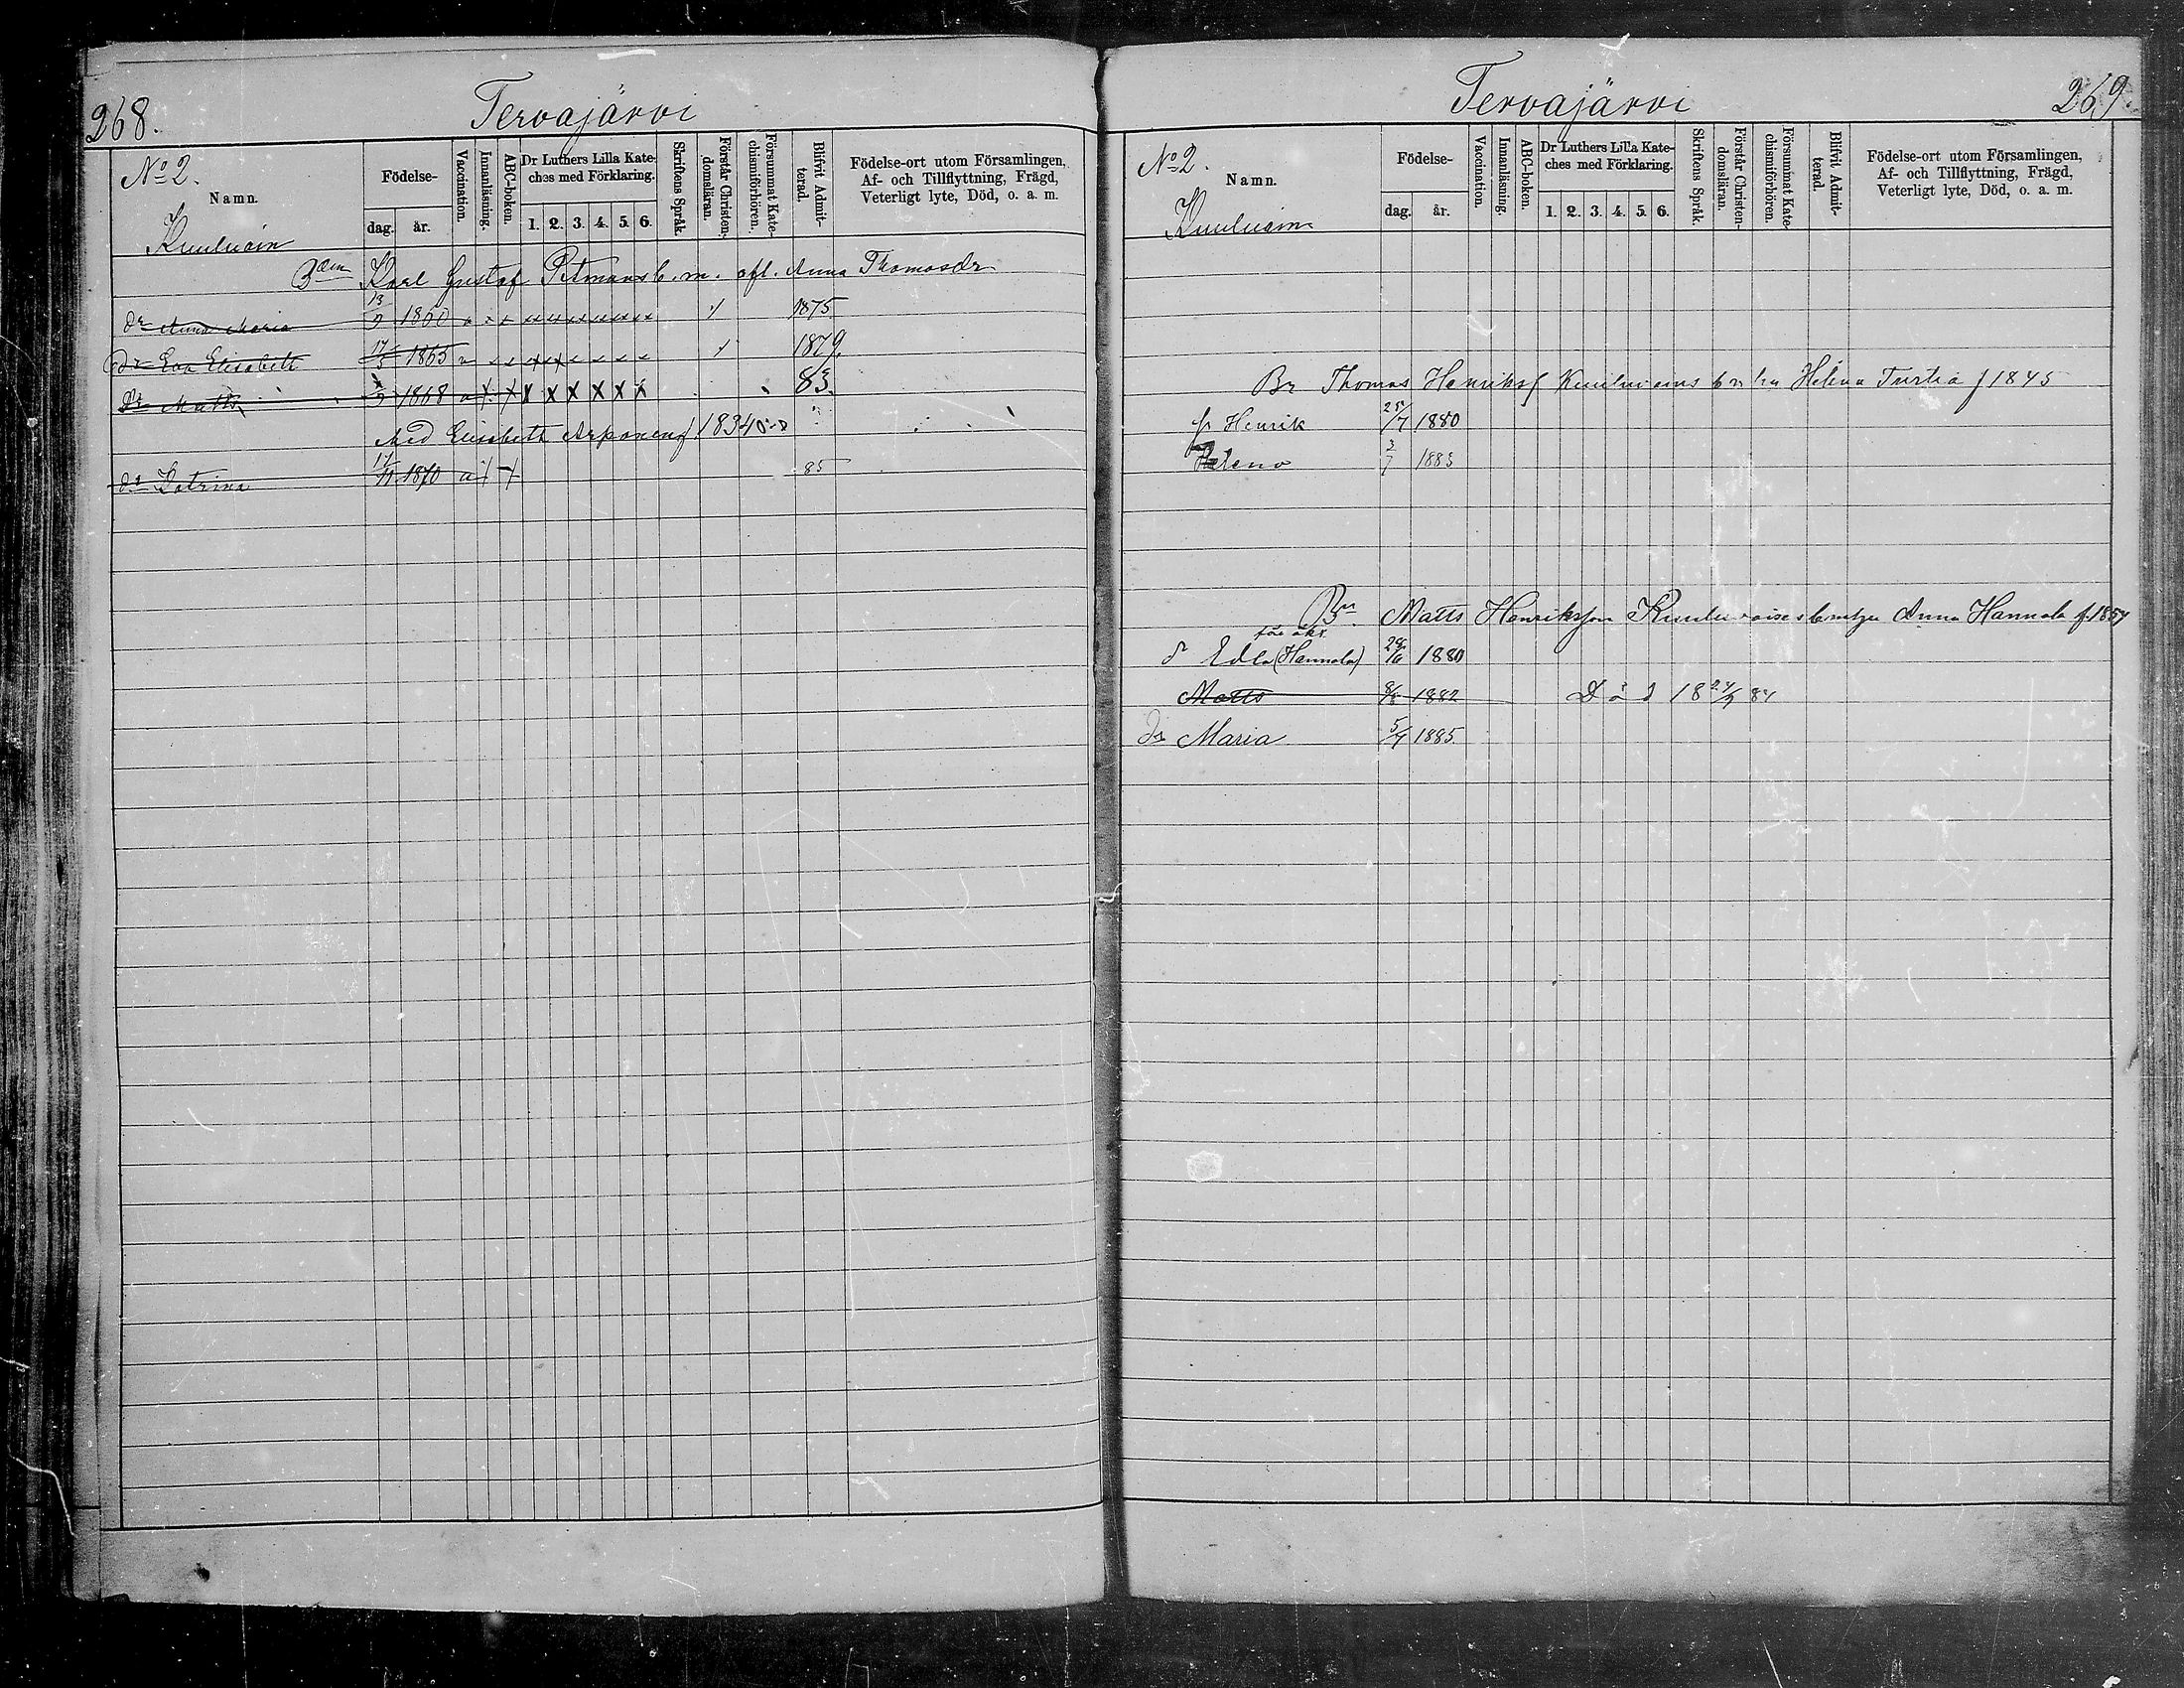 268.
Tervajärvi
No 2.
Namn.
Födelse-
dag. år.
Vaccination.
Innanläsning.
ABC-boken.
Dr Luthers Lilla Kate-
ches med Förklaring.
1. 2. 3. 4. 5. 6.
Skriftens Språk.
Förstår Christen-
domsläran.
Försummat Kate-
chismiförhören.
Blifvit Admit-
terad.
Födelse-ort utom Församlingen,
Af- och Tillflyttning, Frägd,
Veterligt lyte, Död, o. a. m.
Kuuluain
Karl Gustaf b. m. Anna Thomasdr
dr Anna Maria 13/9 1860 1875
dr Eva Elisabeth 17/5 1865 1879.
Matts 1868 83.
Med Elisabeth Arponen f 1834
dr Katrina 17/11 1870 85
Tervajärvi
269.
No 2.
Namn.
Födelse-
dag. år.
Vaccination.
Innanläsning.
ABC-boken.
Dr Luthers Lilla Kate-
ches med Förklaring.
1. 2. 3. 4. 5. 6.
Skriftens Språk.
Förstår Christen-
domsläran.
Försummat Kate-
chismiförhören.
Blifvit Admit-
terad.
Födelse-ort utom Församlingen,
Af- och Tillflyttning, Frägd,
Veterligt lyte, Död, o. a. m.
Kuuluain
Br Thomas Henriksf Helena Turtia f 1845
Henrik 25/7 1880
Helena 3/7 1883
Bn Matts Henriksson Anna Hannola f. 1857
för äkt.
d Edla (Hannola) 28/6 1880
Matts 8/8 1882 Död 18 24/9 84
dr Maria 5/7 1885